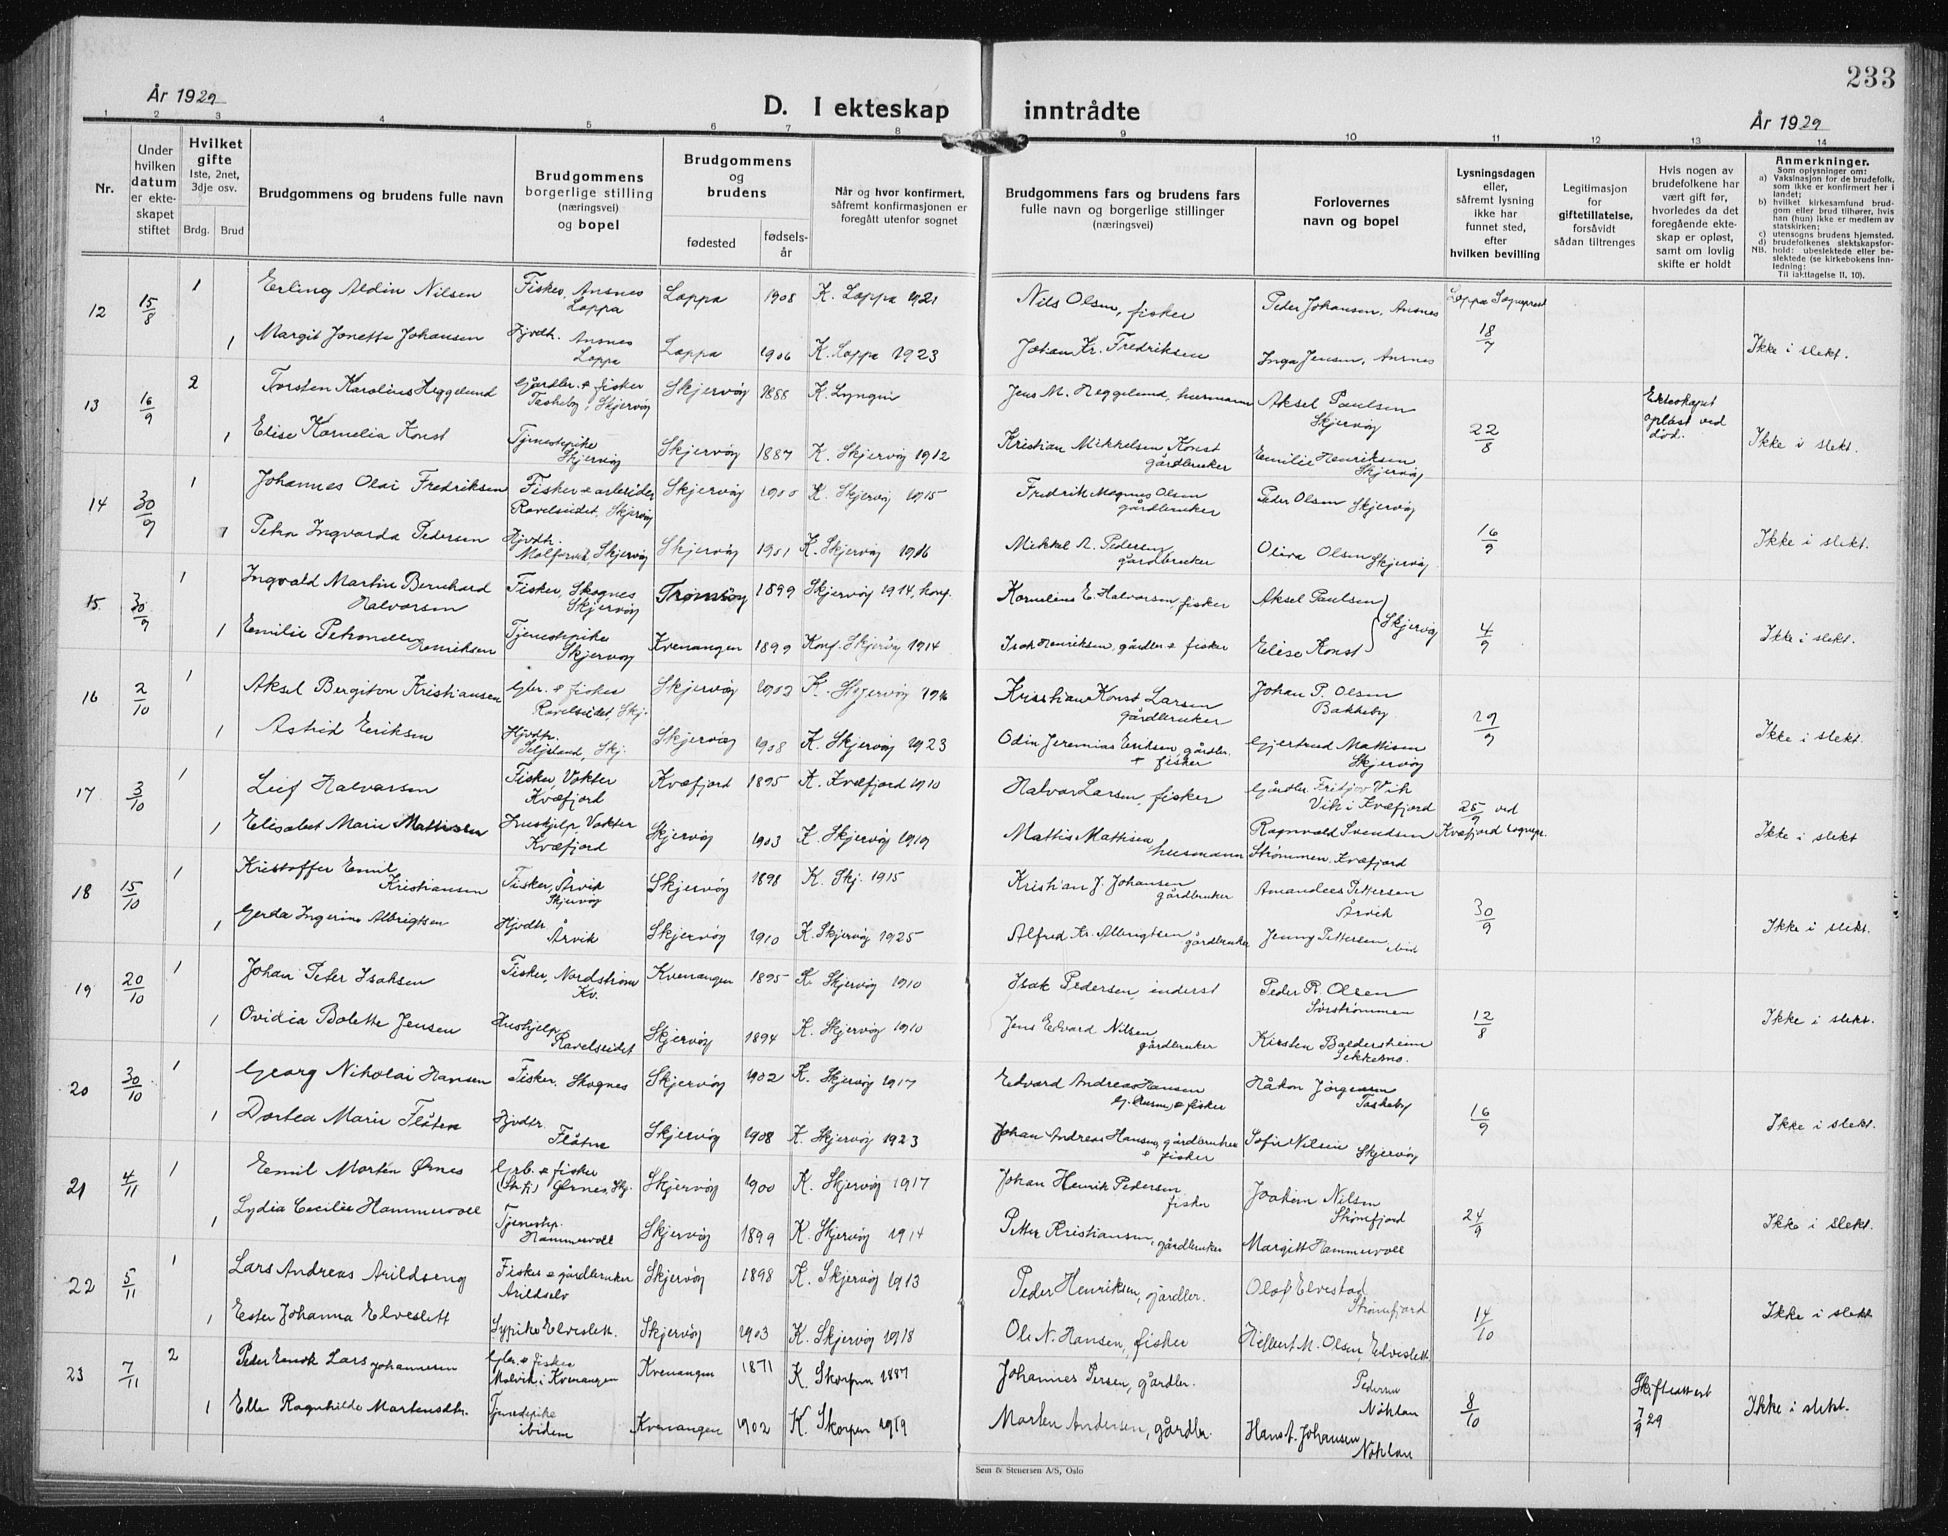 233
År 1929
D. I ekteskap inntrådte
År 1929
1 2 3 4 5 6 7 8 9 10 11 12 13 14
Nr.
Under hvilken datum er ekteskapet stiftet
Hvilket gifte 1ste, 2net, 3dje osv.
Brdg. Brud
Brudgommens og brudens fulle navn
Brudgommens borgerlige stilling (næringsvei) og bopel
Brudgommens og brudens
fødested
fødselsår
Når og hvor konfirmert, såfremt konfirmasjonen er foregått utenfor sognet
Brudgommens fars og brudens fars fulle navn og borgerlige stillinger (næringsvei)
Forlovernes navn og bopel
Lysningsdagen eller, såfremt lysning ikke har funnet sted, efter hvilken bevilling
Legitimasjon for giftetillatelse, forsåvidt sådan tiltrenges
Hvis nogen av brudefolkene har vært gift før, hvorledes da det foregående ekteskap er opløst, samt om lovlig skifte er holdt
Anmerkninger.
Som oplysninger om:
a) Vaksinasjon for de brudefolk, som ikke er konfirmert her i landet;
b) hvilket kirkesamfund brudgom eller brud tilhører, hvis han (hun) ikke er medlem av statskirken;
c) utensogns brudens hjemsted.
d) brudefolkenes slektskapsforhold: ubeslektede eller beslektede (se kirkebokens innledning:
NB.
Til iakttagelse II, 10).
12 15/8 1 Erling Aldin Nilsen Fisker, Ansnes Loppa Loppa 1908 K. Loppa 1921 Nils Olsen, fisker Peder Johansen, Ansnes Loppa Sogneprest 18/7
1 Margit Jonette Johansen Hjvdtr. Ansnes Loppa Loppa 1906 K. Loppa 1923 Johan Kr. Fredriksen Inga Jensen, Ansnes Ikke i slekt.
13 16/9 2 Torsten Karolius Heggelund Gårdbr. & fisker Taskeby, Skjervøy Skjervøy 1888 K. Lyngen Jens M. Heggelund, husmann Aksel Paulsen Skjervøy 22/8 Ekteskapet opløst ved død.
1 Elise Kornelia Konst Tjenestepike Skjervøy Skjervøy 1887 K. Skjervøy 1912 Kristian Mikkelsen Konst gårdbruker Emilie Henriksen Skjervøy Ikke i slekt.
14 30/9 1 Johannes Olai Fredriksen Fisker & arbeider Ravelseidet, Skjervøy Skjervøy 1900 K. Skjervøy 1915 Fredrik Magnus Olsen gårdbruker Peder Olsen Skjervøy 16/9
1 Petra Ingvarda Pedersen Hjvdtr. Skjervøy Skjervøy 1901 K. Skjervøy 1916 Mikkel A. Pedersen gårdbruker Oliva Olsen Skjervøy Ikke i slekt.
15 30/9 1 Ingvald Martin Bernhard Halvorsen Fisker, Skognes Skjervøy Tromsøy 1899 Skjervøy 1914, konf. Kornelius E. Halvorsen, fisker Aksel Paulsen Skjervøy 4/9
1 Emilie Petronelle Henriksen Tjenestepike Skjervøy Kvenangen 1899 Konf. Skjervøy 1914 Isak Henriksen, gårdbr & fisker Elise Konst Ikke i slekt.
16 2/10 1 Aksel Bergiton Kristiansen Gbr. & fisker Ravelseidet, Skj. Skjervøy 1902 K. Skjervøy 1916 Kristian Konst Larsen gårdbruker Johan P. Olsen Bakkeby 29/9
1 Astrid Eriksen Hjvdtr. Seljeland, Skj. Skjervøy 1908 K. Skjervøy 1923 Odin Jeremias Eriksen, gårdbr. & fisker Gjertrud Mattisen Skjervøy Ikke i slekt.
17 3/10 1 Leif Halvorsen Fisker, Vokter Kvæfjord Kvæfjord 1895 K. Kvæfjord 1910 Halvor Larsen, fisker Gårdbr. Fridtjov Vik Vik i Kvæfjord 25/9 ved Kvæfjord sognepr.
1 Elisabet Marie Mattisen Hushjelp, Vokter Kvæfjord Skjervøy 1903 K. Skjervøy 1919 Mattis Mathisen husmann Ragnvald Svendsen Strømmen, Kvæfjord Ikke i slekt
18 15/10 1 Kristoffer Emil Kristiansen Fisker, Årvik Skjervøy Skjervøy 1898 K. Skj. 1915 Kristian J. Johansen gårdbruker Amandus Pettersen Årvik 30/9
1 Gerda Ingerine Albrigtsen Hjvdtr. Årvik Skjervøy 1910 K. Skjervøy 1925 Alfred Kr. Albrigtsen gårdbruker Jenny Pettersen ibid Ikke i slekt.
19 20/10 1 Johan Peter Isaksen Fisker, Nordstrøm Kv. Kvenangen 1895 K. Skjervøy 1910 Isak Pedersen, inderst Peder R. Olsen Sørstrømmen 12/8
1 Ovidia Bolette Jensen Hushjelp Ravelseidet Skjervøy 1894 K. Skjervøy 1910 Jens Edvard Nilsen gårdbruker Kirsten Baldersheim Sekkemo. Ikke i slekt.
20 30/10 1 Georg Nikolai Hansen Fisker, Skognes Skjervøy 1902 K. Skjervøy 1917 Edvard Andreas Hansen & fisker Håkon Jørgensen Taskeby 16/9
1 Dortea Marie Flåten Hjvdtr. Flåten Skjervøy 1908 K. Skjervøy 1923 Johan Andreas Hansen, gårdbruker & fisker Sofie Nilsen Skjervøy Ikke i slekt.
21 4/11 1 Emil Morten Ørnes Grb. & fisker Ørnes, Skj. Skjervøy 1900 K. Skjervøy 1917 Johan Henrik Pedersen fisker Joakim Nilsen Stømfjord 24/9
1 Lydia Cecilie Hammervoll Tjenestep. Hammervoll Skjervøy 1899 K. Skjervøy 1914 Petter Kristiansen, gårdbruker Margitt Hammervoll Ikke i slekt.
22 5/11 1 Lars Andreas Arildseng Fisker & gårdbruker Arildselv Skjervøy 1898 K. Skjervøy 1913 Peder Henriksen, gårdbr. Olaf Elvestad Stømfjord 14/10
1 Ester Johanna Elveslett Sypike Elveslett. Skjervøy 1903 K. Skjervøy 1918 Ole N. Hansen, fisker Helbert M. Olsen, Elveslett Ikke i slekt
23 7/11 2 Peder Enok Lars Johannesen Gbr. & fisker Malvik i Kvenangen Kvenangen 1871 K. Skorpen 1887 Johannes Persen, gårdbr. Pedersen Nöklan 8/10 Skifteattest 7/9 29
1 Ellen Ragnhilde Mortensdtr. Tjenestepike ibidem Kvenangen 1902 K. Skorpen 1919 Morten Andersen, gårdbr. Hans A. Johansen Nöklan Ikke i slekt.
Sem & Stenersen A/S, Oslo